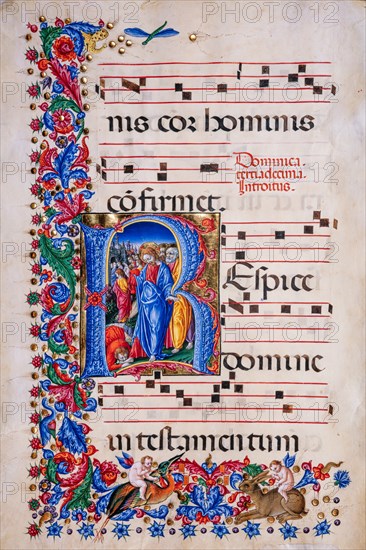 nis cor hominis
Dominica.
tertiadecima.
Introitus.
cōfirmet.
Respice
domine
in testamentum